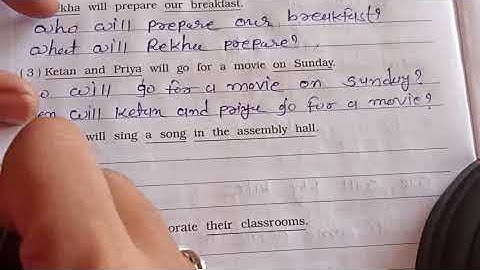 kha will prepare our breakfast.
who will prepare our breakfast?
What will Rekha prepare?
(3) Ketan and Priya will go for a movie on Sunday.
o will go for a movie on sunday?
en will Ketan and priya go for a movie?
will sing a song in the assembly hall.
orate their classrooms.